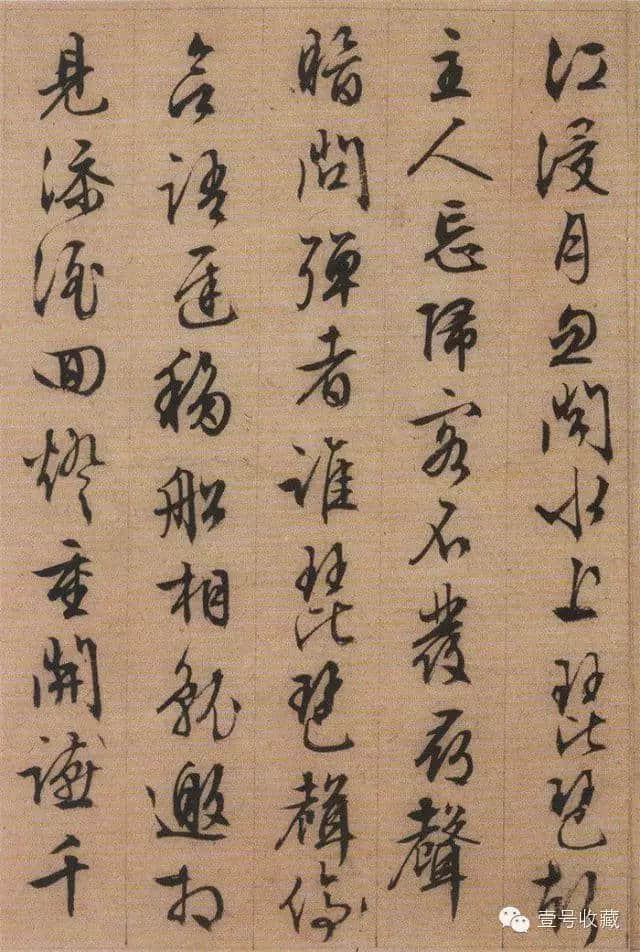 江浸月忽聞水上琵琶聲
主人忘歸客不發尋聲
暗問彈者誰琵琶聲停
欲語遲移船相就邀相
見添酒回燈重開讌千
壹号收藏